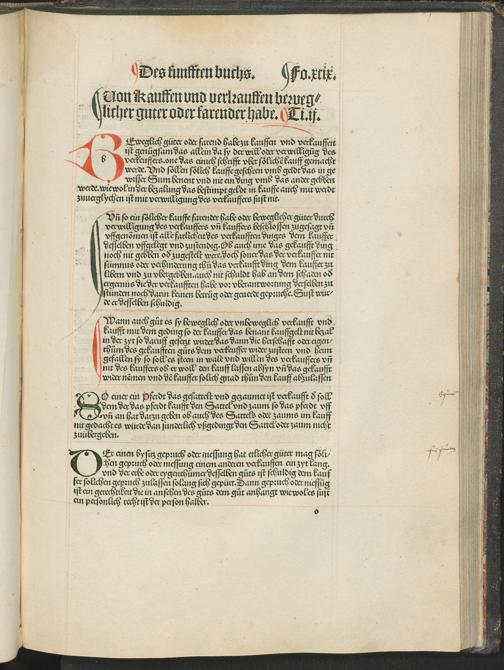 Des funfften buchs. Fo.xcix.
Von Kauffen vnd verkauffen beweg⸗
licher guter oder farender habe. Ti.ij.
BEweglich güter oder farend habe zu kauffen vnd verkauffen
ist genügsam das allein da sy der will oder verwilligūg des
verkeuffers. one das eincich schrifft vber sölichē kauff gemacht
werde. Vnd söllen sölich kauffe gescheen vmb geldt das in ge
wisser Sum benent vnd nit ein ding vmb das ander geben
werde. wiewol in der bezalung das bestimpt gelde in kauffe auch mit werde
zuuerglychen ist mit verwilligung des verkeuffers sust nit.
Vn̄ so ein sölicher kauffe farende habe oder beweglicher güter durch
verwilligung des verkauffers vn̄ kauffers beschlossen zugesagt vn̄
vffgenōmen ist alle farlicheit des verkaufften dinges dem kauffer
desselben vffgelegt vnd zustendig. Ob auch ime das gekaufft ding
noch nit geben od̓ zugestelt were. doch souer das der verkauffer nit
sumnis oder verhinderung thū das verkaufft ding dem kauffer zu
libern vnd zu vbergeben. auch nit schuldt hab an dem schaden od̓
ergernis die der verkaufften habe vor vberantwortung derselben zu
stünden noch darin keinen betrüg oder geuerde gepruche. Sunst wür⸗
de er desselben schuldig.
Wann auch güt es sy beweglich oder vnbeweglich verkaufft vnd
kaufft mit dem geding so der kauffer das benant kauffgelt nit bezal
in der zyt so darūff gesetzt würdt das dann die herschafft oder eigen⸗
thūm des gekaufften güts dem verkauffer wider zusteen vnd heim
gefallen sy so soll es steen in wale vnd willen des verkauffers vn̄
nit des kauffers ob er woll den kauff lassen absyn vn̄ das gekaufft
wider nämen vnd dē kauffer solichs gnad thūn den kauff abzulassen
SO einer ein Pferdt das gesattelt vnd gezaumet ist verkaufft d̓ soll
dem der das pferdt kaufft den Sattel vnd zaum so das pferdt vff
vn̄ an hat darzu geben ob auch des Sattels oder zaums im kauff
nit gedacht es würde dan sunderlich vßgedingt den Sattel oder zaum nicht
zuübergeben.
DEr einen bysitz gepruch oder niessung hat etlicher güter mag söli⸗
chen gepruch oder niessung einem anderen verkauffen ein zyt lang.
vnd der erbe oder eygenthümer desselben güts ist schuldig dem kauf
fer solichen gepruch zulassen solang sich gepürt. Dann gepruch oder niessūg
ist ein gerechtikeit die in ansehen des güts dem güt anhangt wiewol es sust
ein personlich recht ist der person halber.
o